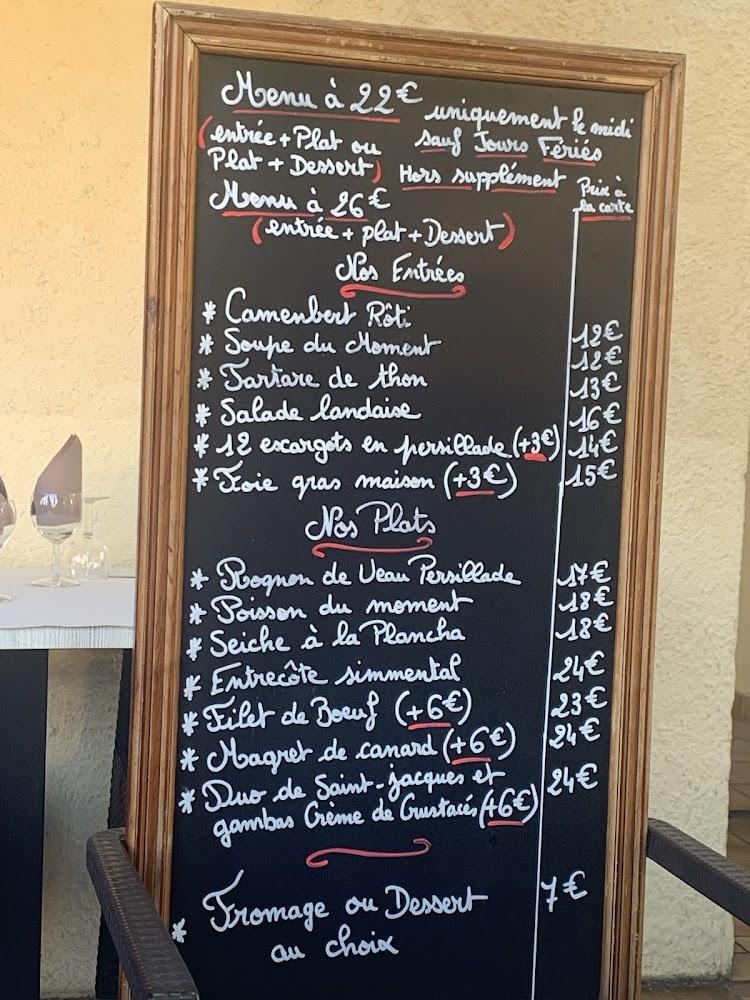 Menu à 22€ uniquement le midi
(entrée + Plat ou sauf Jours Fériés
Plat + Dessert) Hors supplément Prix à
Menu à 26€ la carte
(entrée + plat + Dessert)
Nos Entrées
* Camenbert Rôti 12€
* Soupe du Moment 12€
* Tartare de thon 13€
* Salade landaise 16€
* 12 escargots en persillade (+3€) 14€
* Foie gras maison (+3€) 15€
Nos Plats
* Rognon de Veau Persillade 17€
* Poisson du moment 18€
* Seiche à la Plancha 18€
* Entrecôte simmental 24€
* Filet de Boeuf (+6€) 23€
* Magret de canard (+6€) 24€
* Duo de Saint-jacques et 24€
gambas Crème de Crustacés (+6€)
* Fromage ou Dessert 7€
au choix